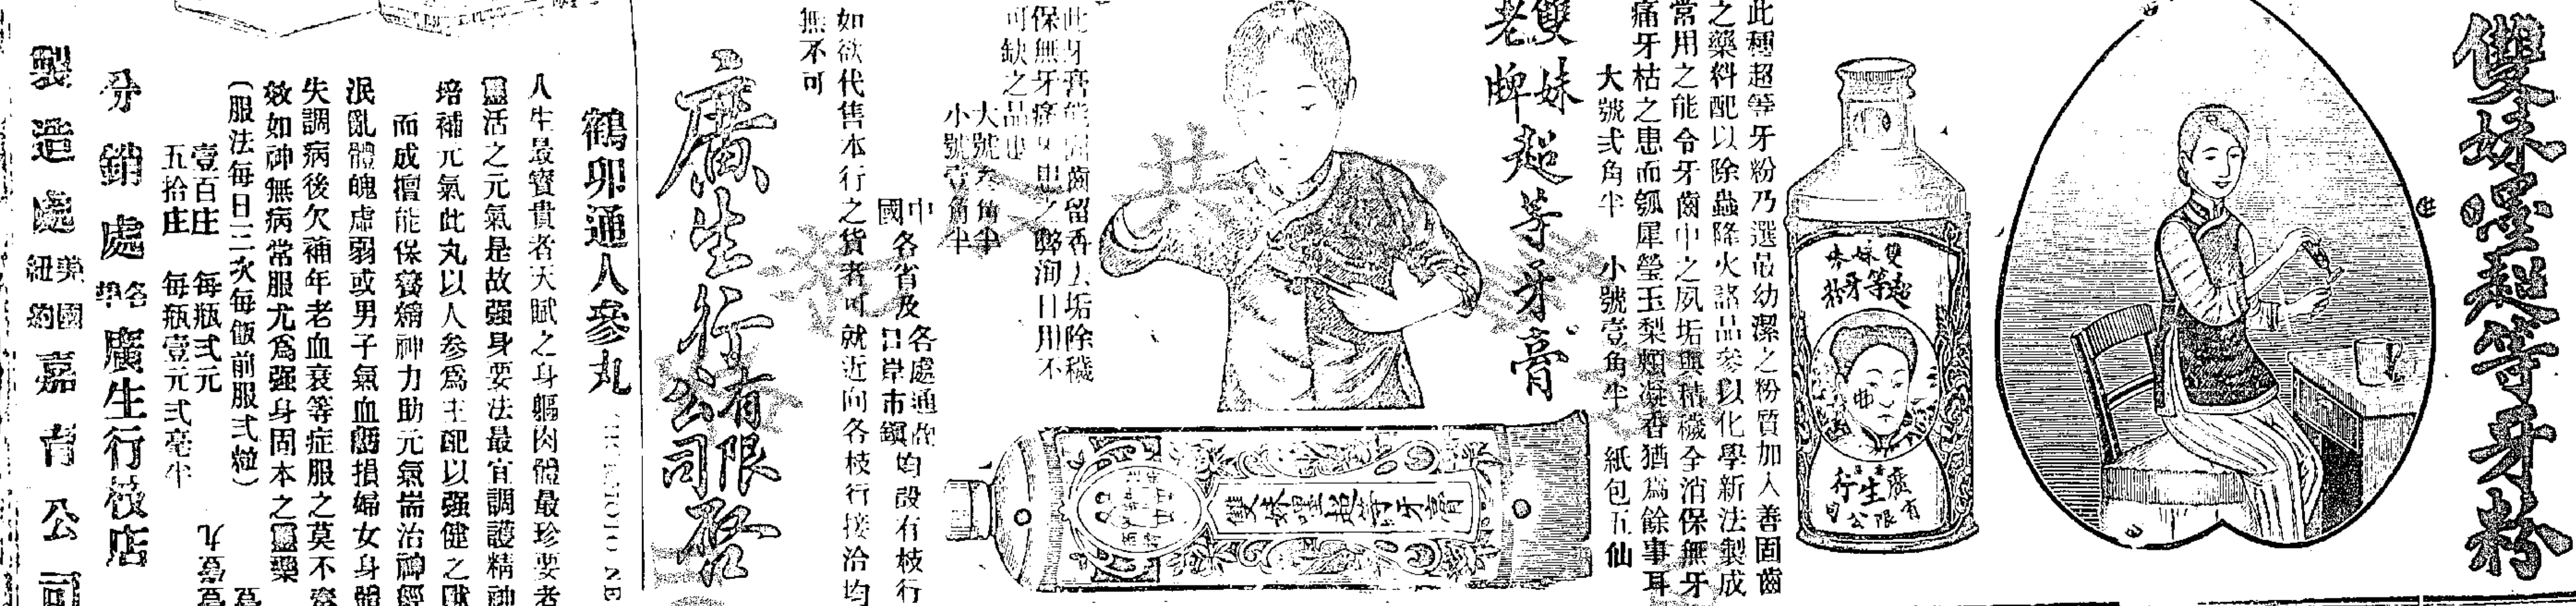 雙妹嚜超等牙粉
雙妹
超等牙粉
廣生行
有限公司
此種超等牙粉乃選最幼潔之粉質加入善固齒
之藥料配以除蟲降火諸品參以化學新法製成
常用之能令牙齒中之夙垢與積穢全消保無牙
痛牙枯之患而瓠犀瑩玉梨頰凝香猶爲餘事耳
大號弍角半 小號壹角半 紙包五仙
雙妹
老牌
超等牙膏
雙妹嚜超等牙膏
此牙膏能固齒留香去垢除穢
保無牙痛牙患之弊洵日用不
可缺之品也
大號叁角半
小號壹角半
中國各省及各處通商口岸市鎭均設有枝行
如欲代售本行之貨者可就近向各枝行接洽均
無不可
廣生行有限公司啓
鶴卯通人參丸
人生最寶貴者天賦之身軀肉體最珍要者
靈活之元氣是故强身要法最宜調護精神
培補元氣此丸以人參爲主配以强健之
而成擅能保養精神力助元氣耑治神經
泯亂體魄虛弱或男子氣血虧損婦女身體
失調病後欠補年老血衰等症服之莫不
效如神無病常服尤爲强身固本之靈藥
(服法每日三次每飯前服弍粒)
壹百庄 每瓶弍元
五拾庄 每瓶壹元弍毫半
分銷處 各埠 廣生行枝店
製造處 美國紐約 嘉 公司